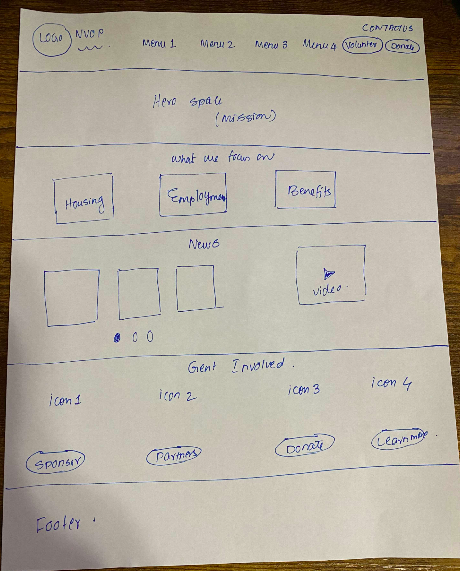 CONTACTUS
LOGO NVOP Menu 1 Menu 2 Menu 3 Menu 4 Volunter Donate
Hero space
(Mission)
what we focus on
Housing Employment Benefits
News
video.
Gent Involved.
icon 1 icon 2 icon 3 icon 4
Sponsor Partners Donate Learn more.
Footer.